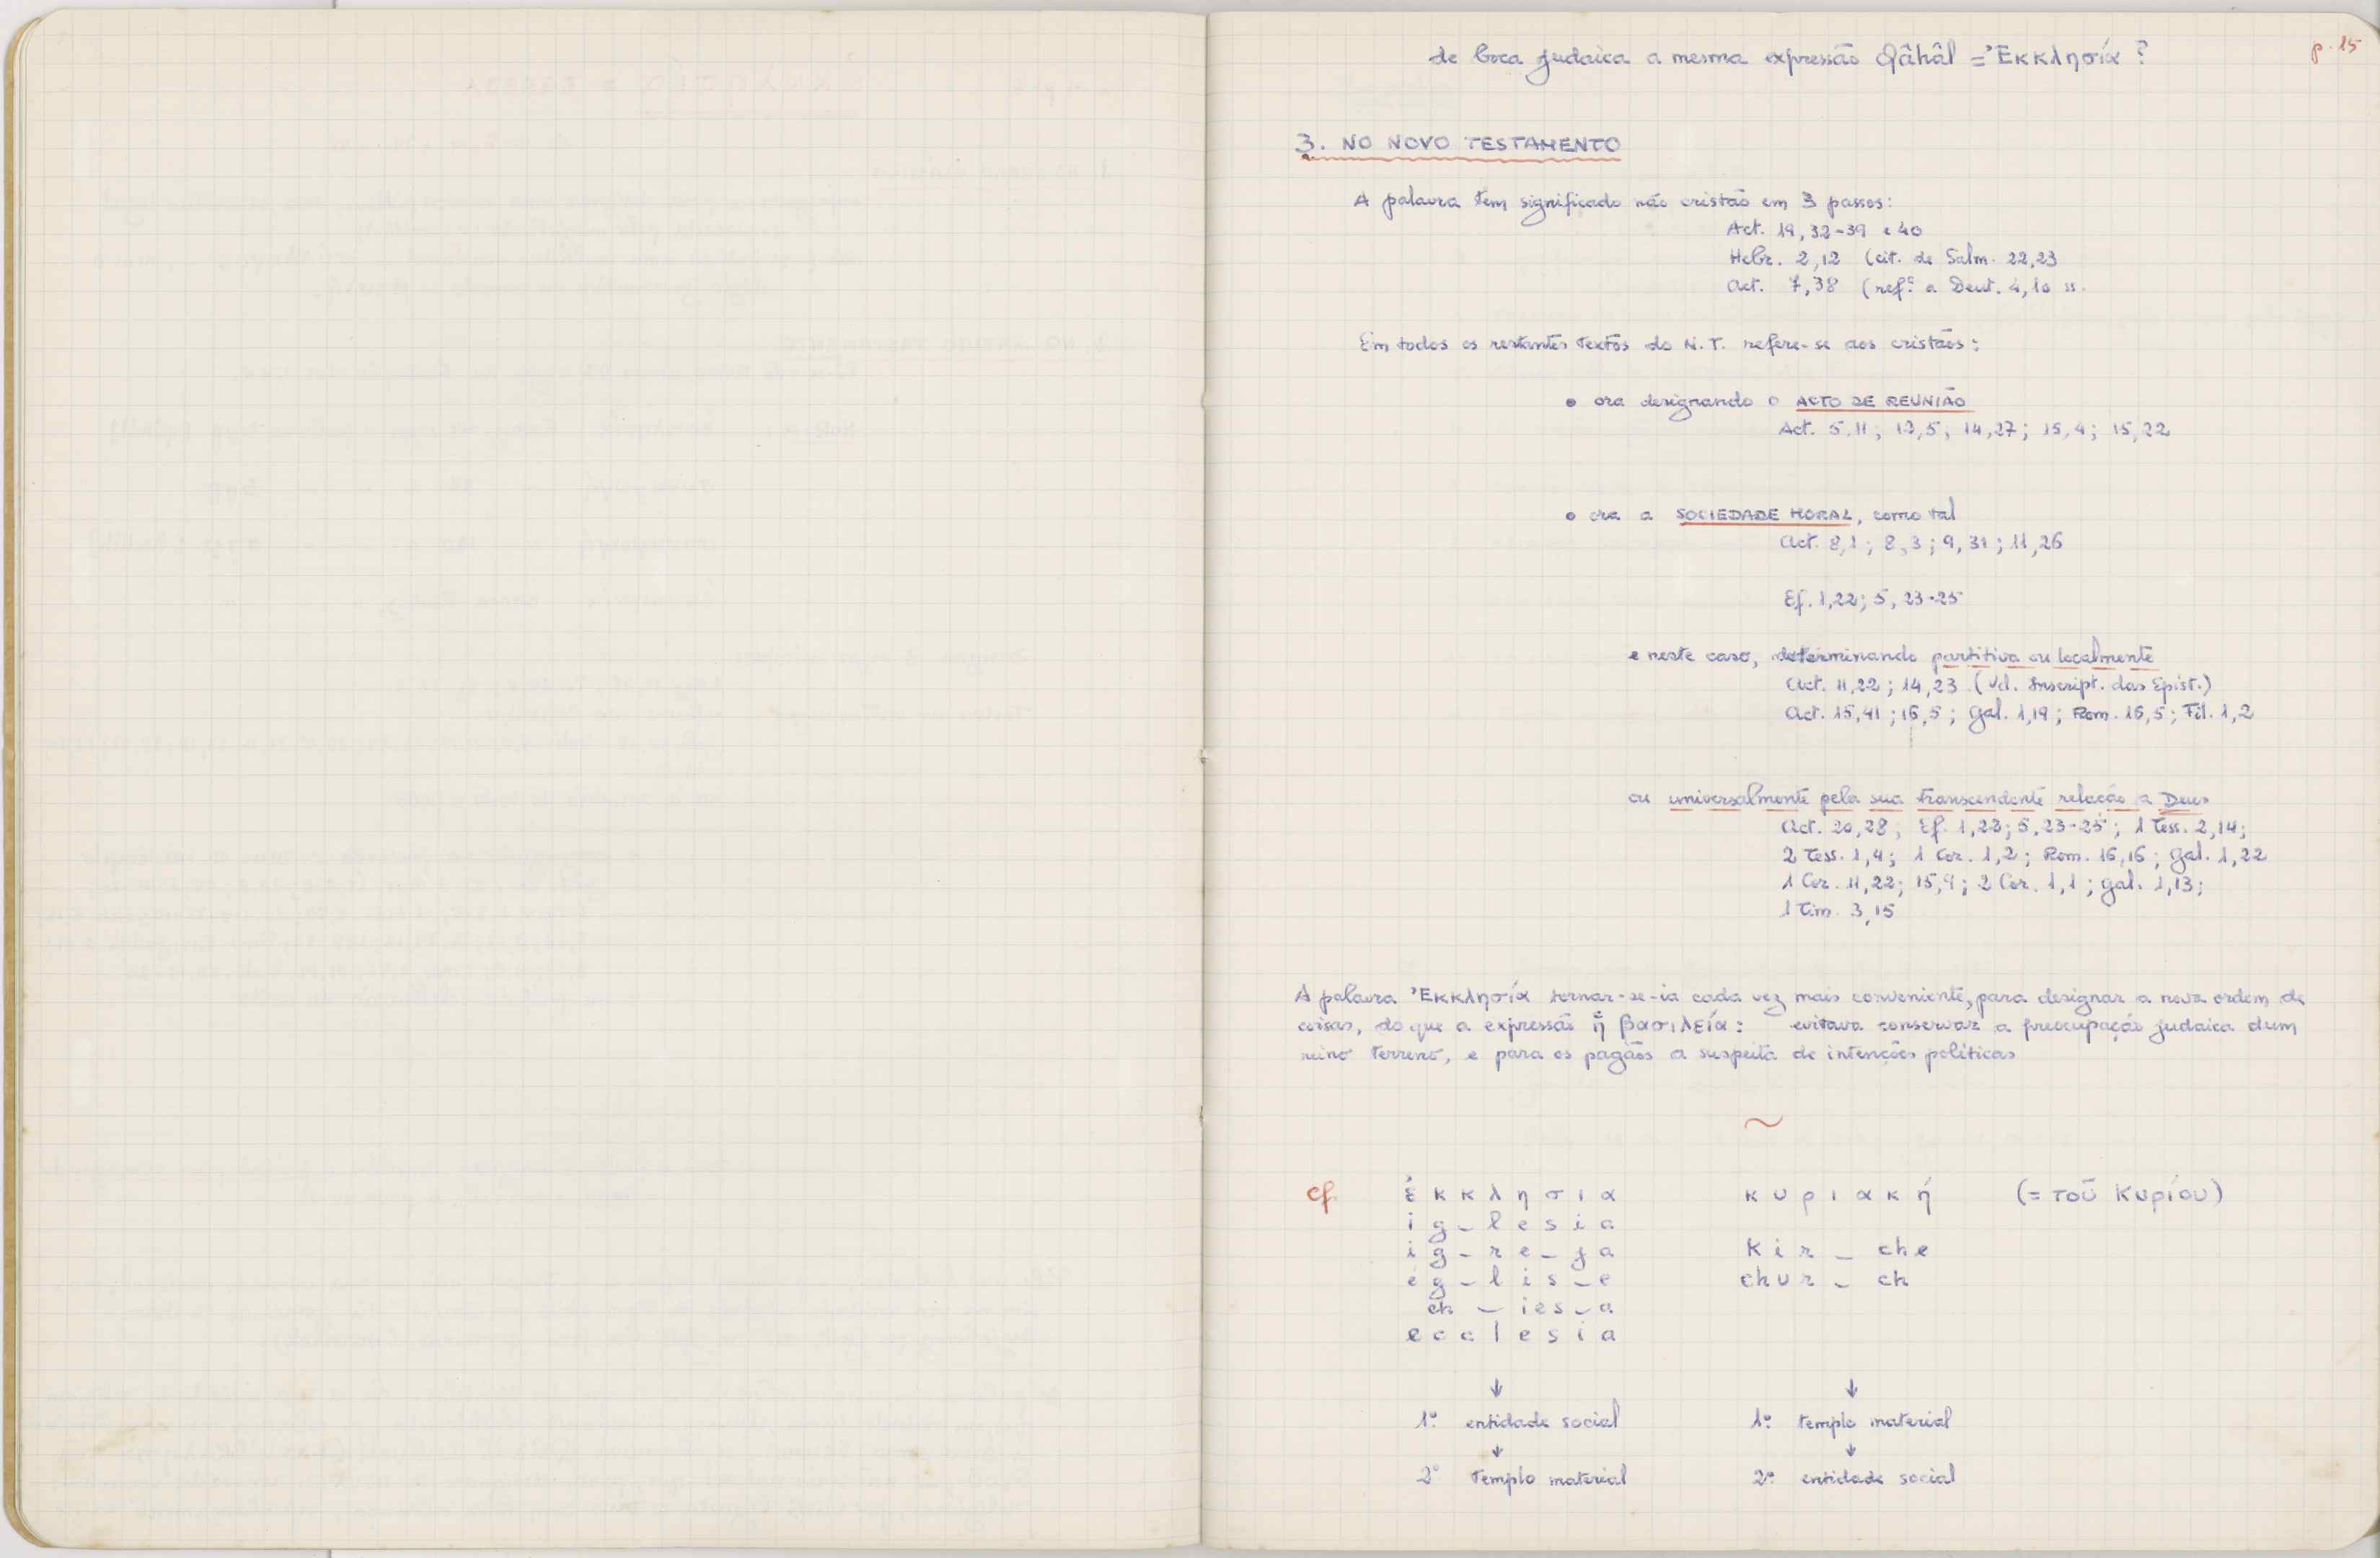 de boca judaica a mesma expressão Qâhâl = Ἐκκλησία ?
p. 15
3. NO NOVO TESTAMENTO
A palavra tem significado não cristão em 3 passos:
Act. 19, 32-39 e 40
Hebr. 2,12 (cit. de Salm. 22,23
Act. 7,38 (refª a Deut. 4,10 ss.
Em todos os restantes textos do N.T. refere-se aos cristãos:
• ora designando o ACTO DE REUNIÃO
Act. 5,11; 12,5; 14,27; 15,4; 15,22
• ora a SOCIEDADE MORAL, como tal
Act. 8,1; 8,3; 9,31; 11,26
Ef. 1,22; 5, 23-25
e neste caso, determinando partitiva ou localmente
Act. 11,22; 14,23 (Vd. Inscript. das Epist.)
Act. 15,41; 16,5; Gal. 1,19; Rom. 16,5; Fil. 1,2
ou universalmente pela sua transcendente relação a Deus
Act. 20,28; Ef. 1,22; 5,23-25; 1 Tess. 2,14;
2 Tess. 1,4; 1 Cor. 1,2; Rom. 16,16; Gal. 1,22
1 Cor. 11,22; 15,9; 2 Cor. 1,1; Gal. 1,13;
1 Tim. 3,15
A palavra Ἐκκλησία tornar-se-ia cada vez mais conveniente, para designar a nova ordem de
coisas, do que a expressão ἡ βασιλεία: evitava conservar a preocupação judaica dum
reino terreno, e para os pagãos a suspeita de intenções políticas
~
cf. ἐ κ κ λ η σ ι α κ υ ρ ι α κ ή (= τοῦ Κυρίου)
i g _ l e s i a
i g _ r e _ j a K i r _ che
é g _ l i s _ e chur _ ch
ch _ ies _ a
e c c l e s i a
↓ ↓
1º entidade social 1º templo material
↓ ↓
2º templo material 2º entidade social